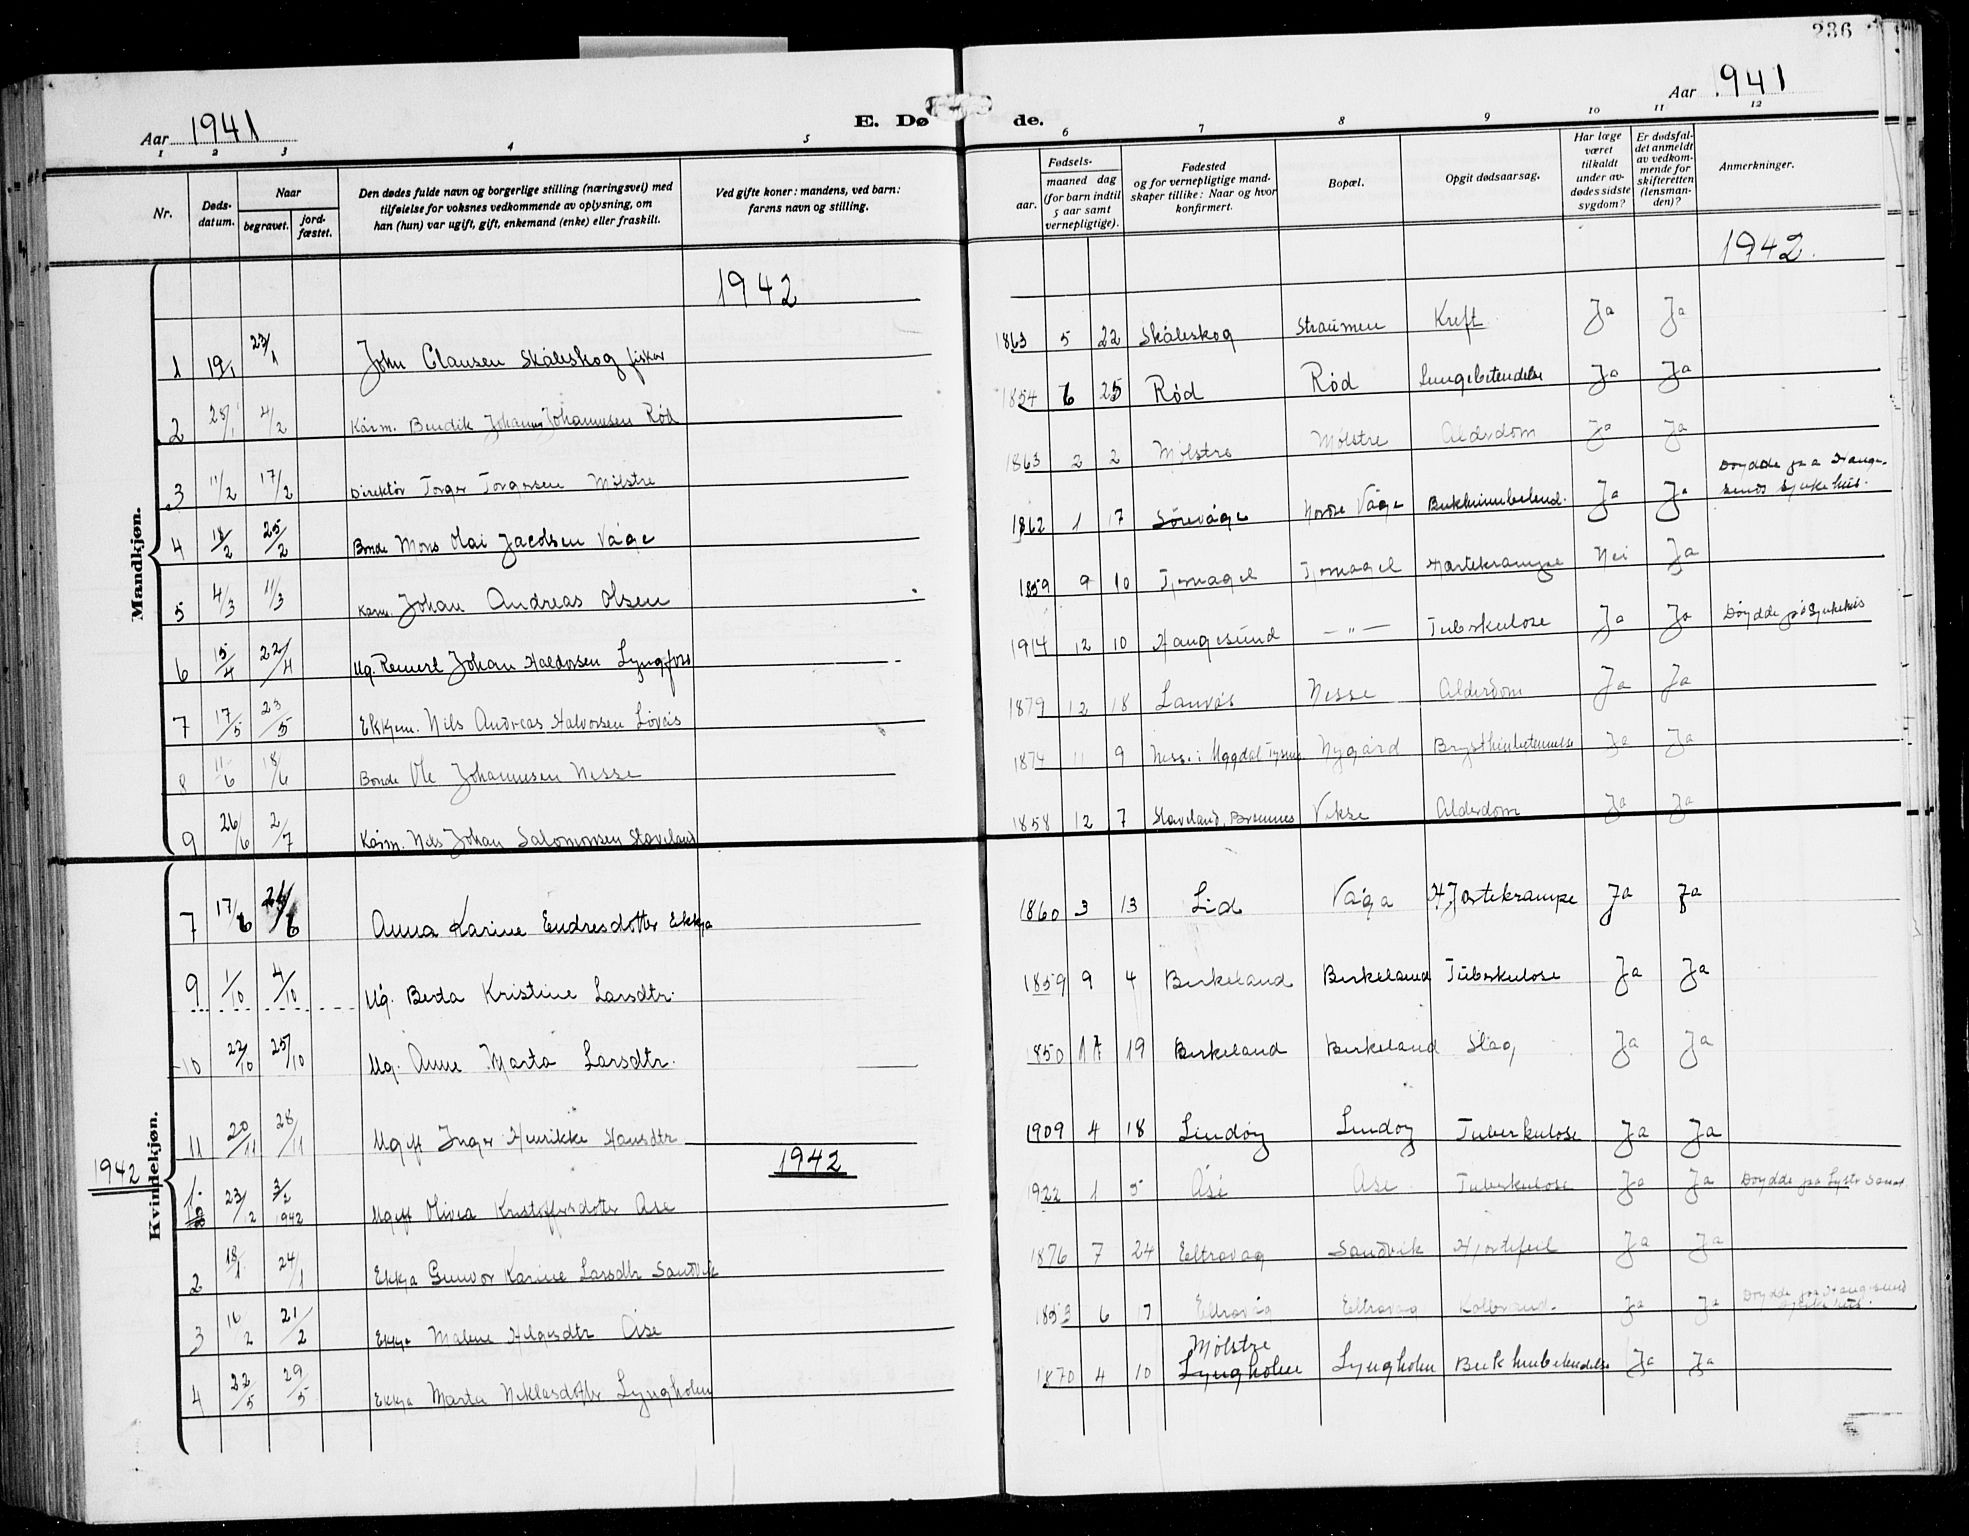 236
Aar 1941
E. Døde.
Aar 1941
1 2 3 4 5 6 7 8 9 10 11 12
Nr.
Døds-datum.
Naar
begravet.
jord-fæstet.
Den dødes fulde navn og borgerlige stilling (næringsvei) med
tilføielse for voksnes vedkommende av oplysning, om
han (hun) var ugift, gift, enkemand (enke) eller fraskilt.
Ved gifte koner: mandens, ved barn:
farens navn og stilling.
Fødsels-
aar.
maaned dag
(for barn indtil
5 aar samt
vernepligtige).
Fødested
og for vernepligtige mand-
skaper tillike: Naar og hvor
konfirmert.
Bopæl.
Opgit dødsaarsag.
Har læge
været
tilkaldt
under av-
dødes sidste
sygdom?
Er dødsfal-
det anmeldt
av vedkom-
mende for
skifteretten
(lensman-
den)?
Anmerkninger.
Mandkjøn.
1942 1942.
1 19/1 23/1 John Clausen Skåleskog fisker 1863 5 22 Skåleskog Straumen Kreft Ja Ja
2 28/1 4/2 Kårm. Bendik Johannes Johannesen Rød 1854 6 25 Rød Rød Lungebetendelse Ja Ja
3 11/2 17/2 Direktør Torger Torgersen Mølstre 1863 2 2 Mølstre Mølstre Alderdom Ja Ja
4 18/2 25/2 Bonde Mons Olai Jacobsen Våge 1862 1 17 Sørevåge Nordre Våge Bukhinnebetend. Ja Ja Døydde paa Hauge-
sunds Sjukehus.
5 4/3 11/3 Kårm. Johan Andreas Olsen 1859 9 10 Tjernagel Tjernagel Hjartekrampe Nei Ja
6 15/4 22/4 Ug. Reinert Johan Haldorsen Lyngfors 1914 12 10 Haugesund — " — Tuberkulose Ja Ja Døydde på Sjukehus
7 17/5 23/5 Ekkjem. Nils Andreas Halvorsen Løvås 1879 12 18 Lauvås Nesse Alderdom Ja Ja
8 11/6 18/6 Bonde Ole Johannesen Nesse 1874 11 9 Nesse i Uggdal Tysnes Nygård Brysthinbetennelse Ja Ja
9 26/6 2/7 Kårm. Nils Johan Salomonsen Staveland 1858 12 7 Staveland, Bremnes Vikse Alderdom Ja Ja
Kvindekjøn.
7 17/6 24/6 Anna Karine Endresdotter Ekkja 1860 3 13 Lid Våga Hjartekrampe Ja Ja
9 1/10 4/10 Ug. Berta Kristine Larsdtr. 1859 9 4 Birkeland Birkeland Tuberkulose Ja Ja
10 22/10 25/10 Ug. Anne Marta Larsdtr. 1850 11 19 Birkeland Birkeland Slag Ja Ja
11 20/11 28/11 Ugift Inger Henrikke Hansdtr 1909 4 18 Lindøy Lindøy Tuberkulose Ja Ja
1942 1942
1. 23/12 3/2 1942 Ugift Olivia Kristoffersdotter Åse 1922 1 5 Åse Åse Tuberkulose Ja Ja Døydde paa Lyster Sanat.
2 18/1 24/1 Ekkja Gunvor Karine Larsdtr Sandvik 1876 7 24 Eltravåg Sandvik Hjertefeil Ja Ja
3 16/2 21/2 Ekkja Malene Helgesdtr Åse 1853 6 17 Eltravåg Eltravåg Ja Ja Døydde paa Haugesund
Sjukehus.
4 22/5 29/5 Ekkja Marta Niklasdotter Lyngholm 1870 4 10 Mølstre
Lyngholm Lyngholm Bukhinbetendelse Ja Ja